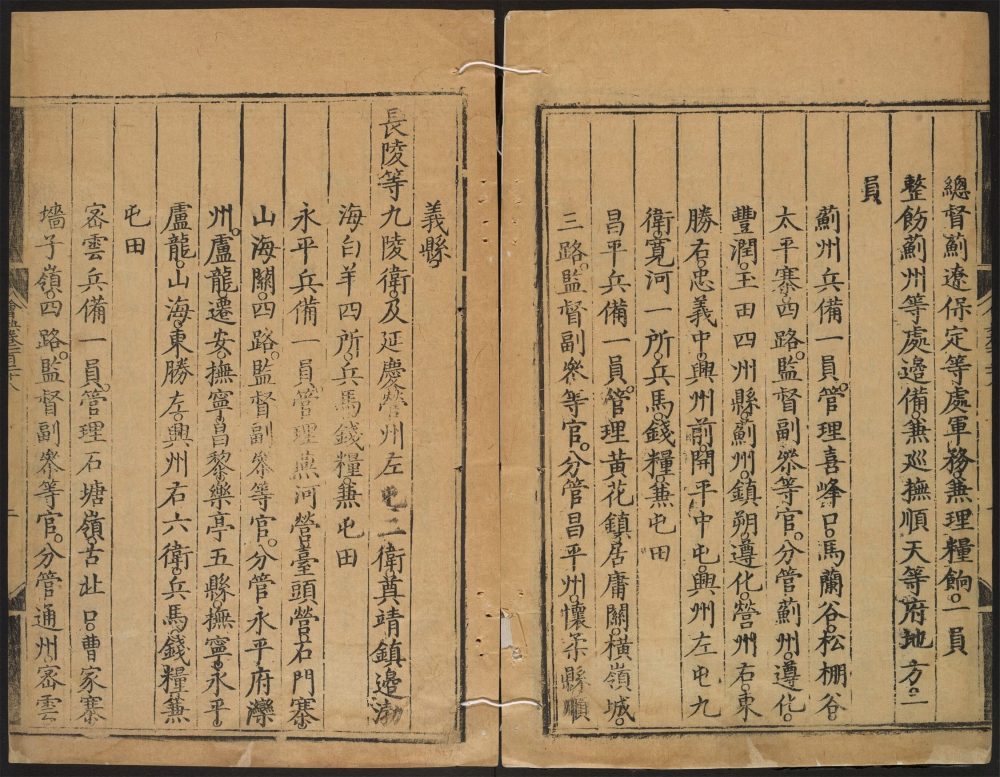 總督薊遼保定等處軍務。兼理糧餉。一員
整飭薊州等處邊備。兼巡撫順天等府地方。一
員
薊州兵備一員。管理喜峰口。馬蘭谷。松棚谷。
太平寨。四路。監督副參等官。分管薊州。遵化。
豐潤。玉田四州縣。薊州。鎮朔。遵化。營州右。東
勝右。忠義中。興州前。開平中屯。興州左屯九
衛。寬河一所。兵馬。錢糧。兼屯田
昌平兵備一員。管理黃花鎮。居庸關。橫嶺城。
三路。監督副參等官。分管昌平州。懷柔縣。順
義縣。
長陵等九陵衛。及延慶。營州左屯二衛。奠靖。鎮邊。渤
海。白羊四所。兵馬錢糧。兼屯田
永平兵備一員。管理燕河營。臺頭營。石門寨。
山海關。四路。監督副參等官。分管永平府灤
州。盧龍。遷安。撫寧。昌黎。樂亭五縣。撫寧。永平。
盧龍。山海。東勝左。興州右六衛。兵馬。錢糧。兼
屯田
密雲兵備一員。管理石塘嶺。古北口。曹家寨。
墻子嶺。四路。監督副參等官。分管通州。密雲